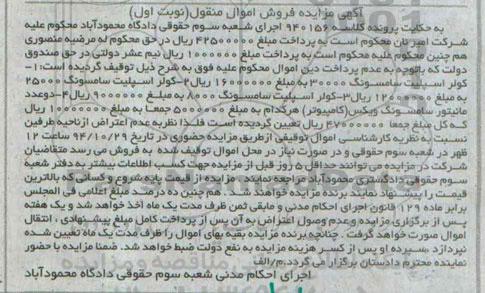 آگهی مزایده فروش اموال منقول(نوبت اول)
به حکایت پرونده کلاسه ۹۴۰۱۵۶ اجرای شعبه سوم حقوقی دادگاه محمودآباد محکوم علیه
شرکت امیر تان محکوم است به پرداخت مبلغ ۴۲۵۰۰۰۰۰ ریال در حق محکوم له مرضیه منصوری
هم چنین محکوم علیه محکوم است به پرداخت مبلغ ۱۰۰۰۰۰۰ ریال نیم عشر دولتی در حق صندوق
دولت که باتوجه به عدم پرداخت دین اموال محکوم علیه فوق به شرح ذیل توقیف گردیده است:۱-
کولر اسپلیت سامسونگ ۳۰۰۰۰ به مبلغ ۱۶۰۰۰۰۰۰ ریال۲-کولر اسپلیت سامسونگ ۲۵۰۰۰
به مبلغ ۱۲۰۰۰۰۰۰ ریال۳-کولر اسپلیت سامسونگ ۸۰۰۰ به مبلغ ۹۰۰۰۰۰۰ ریال۴-دوعدد
مانیتور سامسونگ وکیس(کامپیوتر) هرکدام به مبلغ ۵۰۰۰۰۰۰ جمعا به مبلغ ۱۰۰۰۰۰۰۰ ریال
که کل مبلغ جمعا ۴۷۰۰۰۰۰۰ ریال تعیین گردیده است فلذا نظربه عدم اعتراض ازناحیه طرفین
نسبت به نظریه کارشناسی اموال توقیفی ازطریق مزایده حضوری در تاریخ ۹۴/۱۰/۲۹ ساعت ۱۲
ظهر در شعبه سوم حقوقی و در صورت نیاز در محل اموال توقیف شده به فروش می رسد متقاضیان
شرکت در مزایده می توانند حداقل ۵ روز قبل از مزایده جهت کسب اطلاعات بیشتر به دفتر شعبه
سوم حقوقی دادگستری محمودآباد مراجعه نمایند . مزایده از قیمت پایه شروع و کسانی که بالاترین
قیمت را پیشنهاد نمایند برنده مزایده خواهند شد . هم چنین ده درصد مبلغ اعلامی فی المجلس
برابر ماده ۱۲۹ قانون اجرای احکام مدنی و مابقی ثمن ظرف مدت یک ماه اخذ خواهد شد و یک هفته
پس از برگزاری مزایده و عدم وصول اعتراض به آن پس از پرداخت کامل مبلغ پیشنهادی ، انتقال
اموال صورت خواهد گرفت . چنانچه برنده مزایده بقیه بهای اموال را ظرف مدت یک ماه تعیین شده
نپردازد ،سپرده او پس از کسر هزینه مزایده به نفع دولت ضبط خواهد شد. ضمنا مزایده با حضور
نماینده محترم دادستان برگزار می گردد.م/الف
اجرای احکام مدنی شعبه سوم حقوقی دادگاه محمودآباد